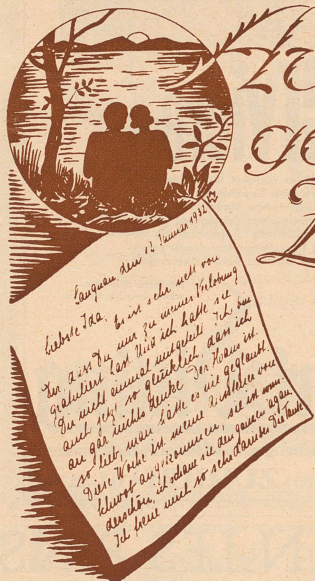 Langnau, den 12. Januar 1932
Liebste Ida, Es ist sehr nett von
Dir, dass Du mir zu meiner Verlobung
gratuliert hast. Und ich hatte sie
Dir nicht einmal mitgeteilt. Ich bin
auch jetzt so glücklich, dass ich
an gar nichts denke. Der Hans ist
so lieb, man hätte es nie geglaubt.
Diese Woche ist meine Aussteuer von
Schwob angekommen, sie ist wun-
derschön, ich schaue sie den ganzen Tag an.
Ich freue mich so sehr darüber. Die Tante